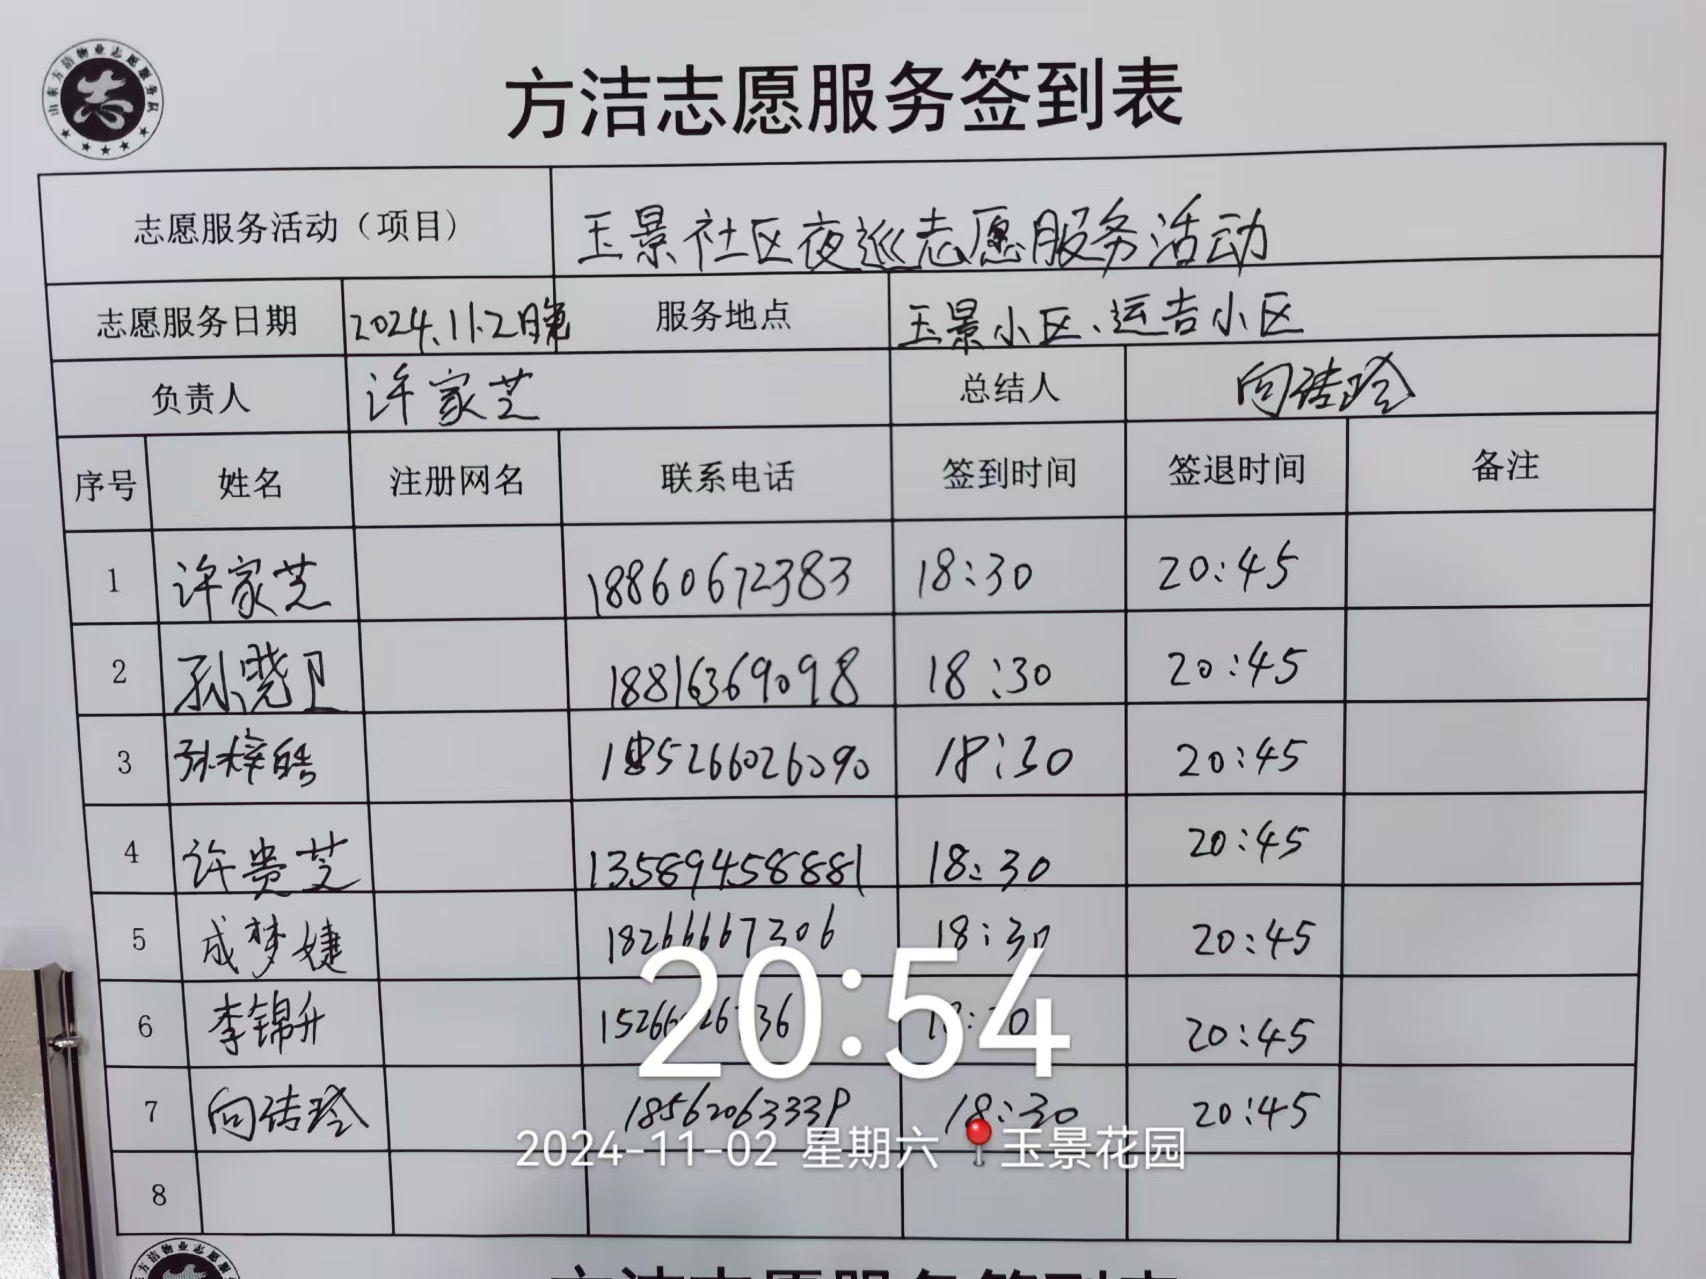 山东方洁物业志愿服务队
志
方洁志愿服务签到表
志愿服务活动（项目） 玉景社区夜巡志愿服务活动
志愿服务日期 2024.11.2晚 服务地点 玉景小区、运吉小区
负责人 许家芝 总结人 向洁玲
序号 姓名 注册网名 联系电话 签到时间 签退时间 备注
1 许家芝 18860672383 18:30 20:45
2 孙晓卫 18816369098 18:30 20:45
3 孙梓皓 185266026090 18:30 20:45
4 许贵芝 13589458881 18:30 20:45
5 成梦婕 18266667306 18:30 20:45
6 李锦升 20:45
7 向洁玲 18:30 20:45
8
20:54
2024-11-02 星期六 玉景花园
方洁志愿服务签到表